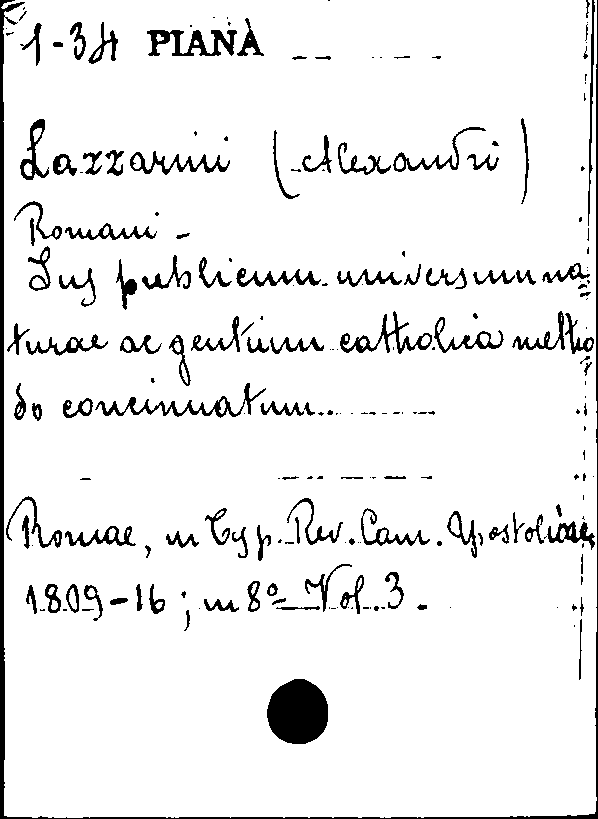 1-34 PIANA
Lazzarini (Alexandri)
Romani -
Jus publicum universum na
turae ac gentium catholica metho
do concinnatum.
Romae, in Typ. Rev. Cam. Apostolicae,
1809-16; in 8º Vol. 3.